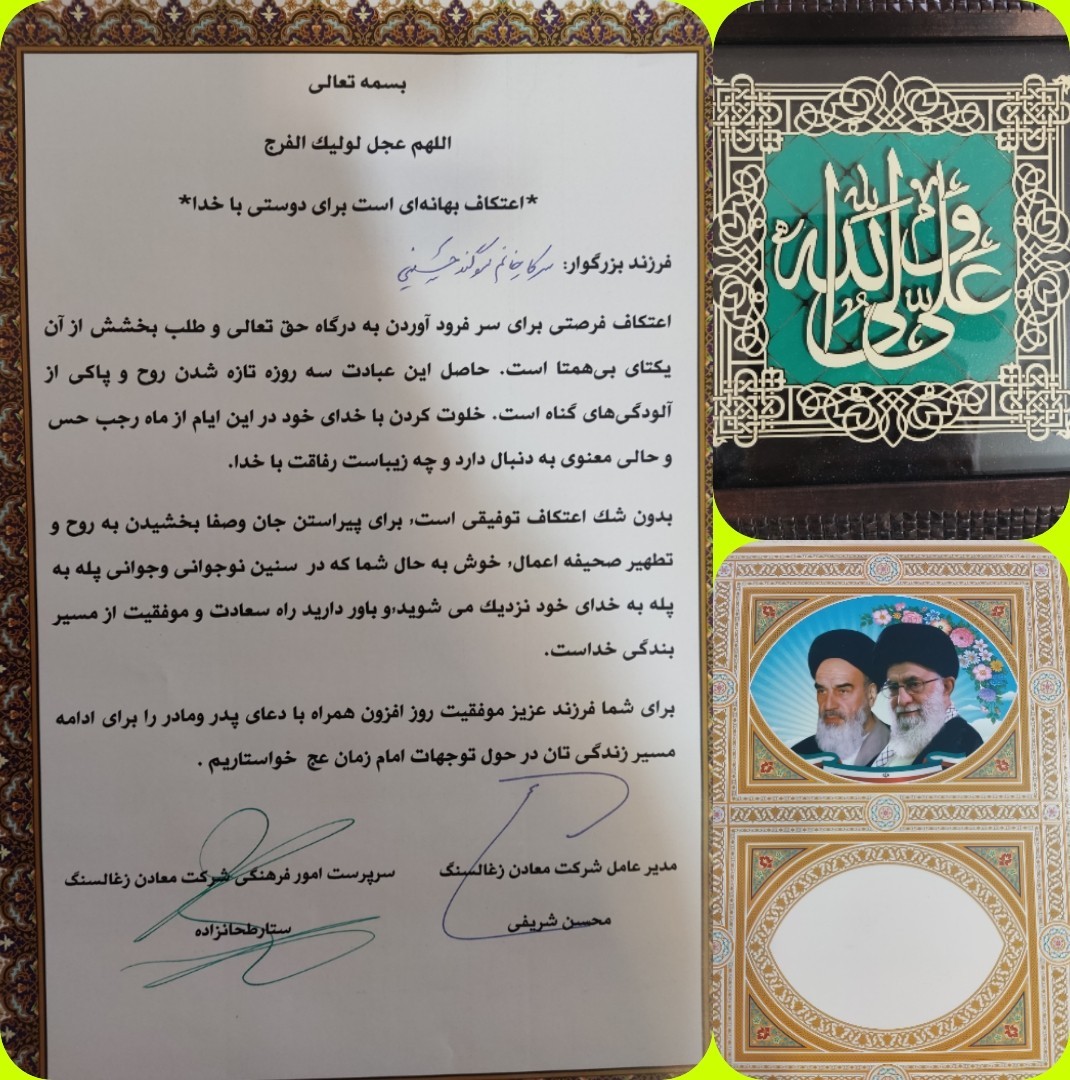 بسمه تعالی
اللهم عجل لولیك الفرج
*اعتکاف بهانه‌ای است برای دوستی با خدا*
فرزند بزرگوار: سرکار خانم سوگند حسینی
اعتکاف فرصتی برای سر فرود آوردن به درگاه حق تعالی و طلب بخشش از آن
یکتای بی‌همتا است. حاصل این عبادت سه روزه تازه شدن روح و پاکی از
آلودگی‌های گناه است. خلوت کردن با خدای خود در این ایام از ماه رجب حس
و حالی معنوی به دنبال دارد و چه زیباست رفاقت با خدا.
بدون شك اعتکاف توفیقی است، برای پیراستن جان وصفا بخشیدن به روح و
تطهیر صحیفه اعمال، خوش به حال شما که در سنین نوجوانی وجوانی پله به
پله به خدای خود نزدیك می شوید،و باور دارید راه سعادت و موفقیت از مسیر
بندگی خداست.
برای شما فرزند عزیز موفقیت روز افزون همراه با دعای پدر ومادر را برای ادامه
مسیر زندگی تان در حول توجهات امام زمان عج خواستاریم .
مدیر عامل شرکت معادن زغالسنگ
محسن شریفی
سرپرست امور فرهنگی شرکت معادن زغالسنگ
ستارطحانزاده
علی ولی الله